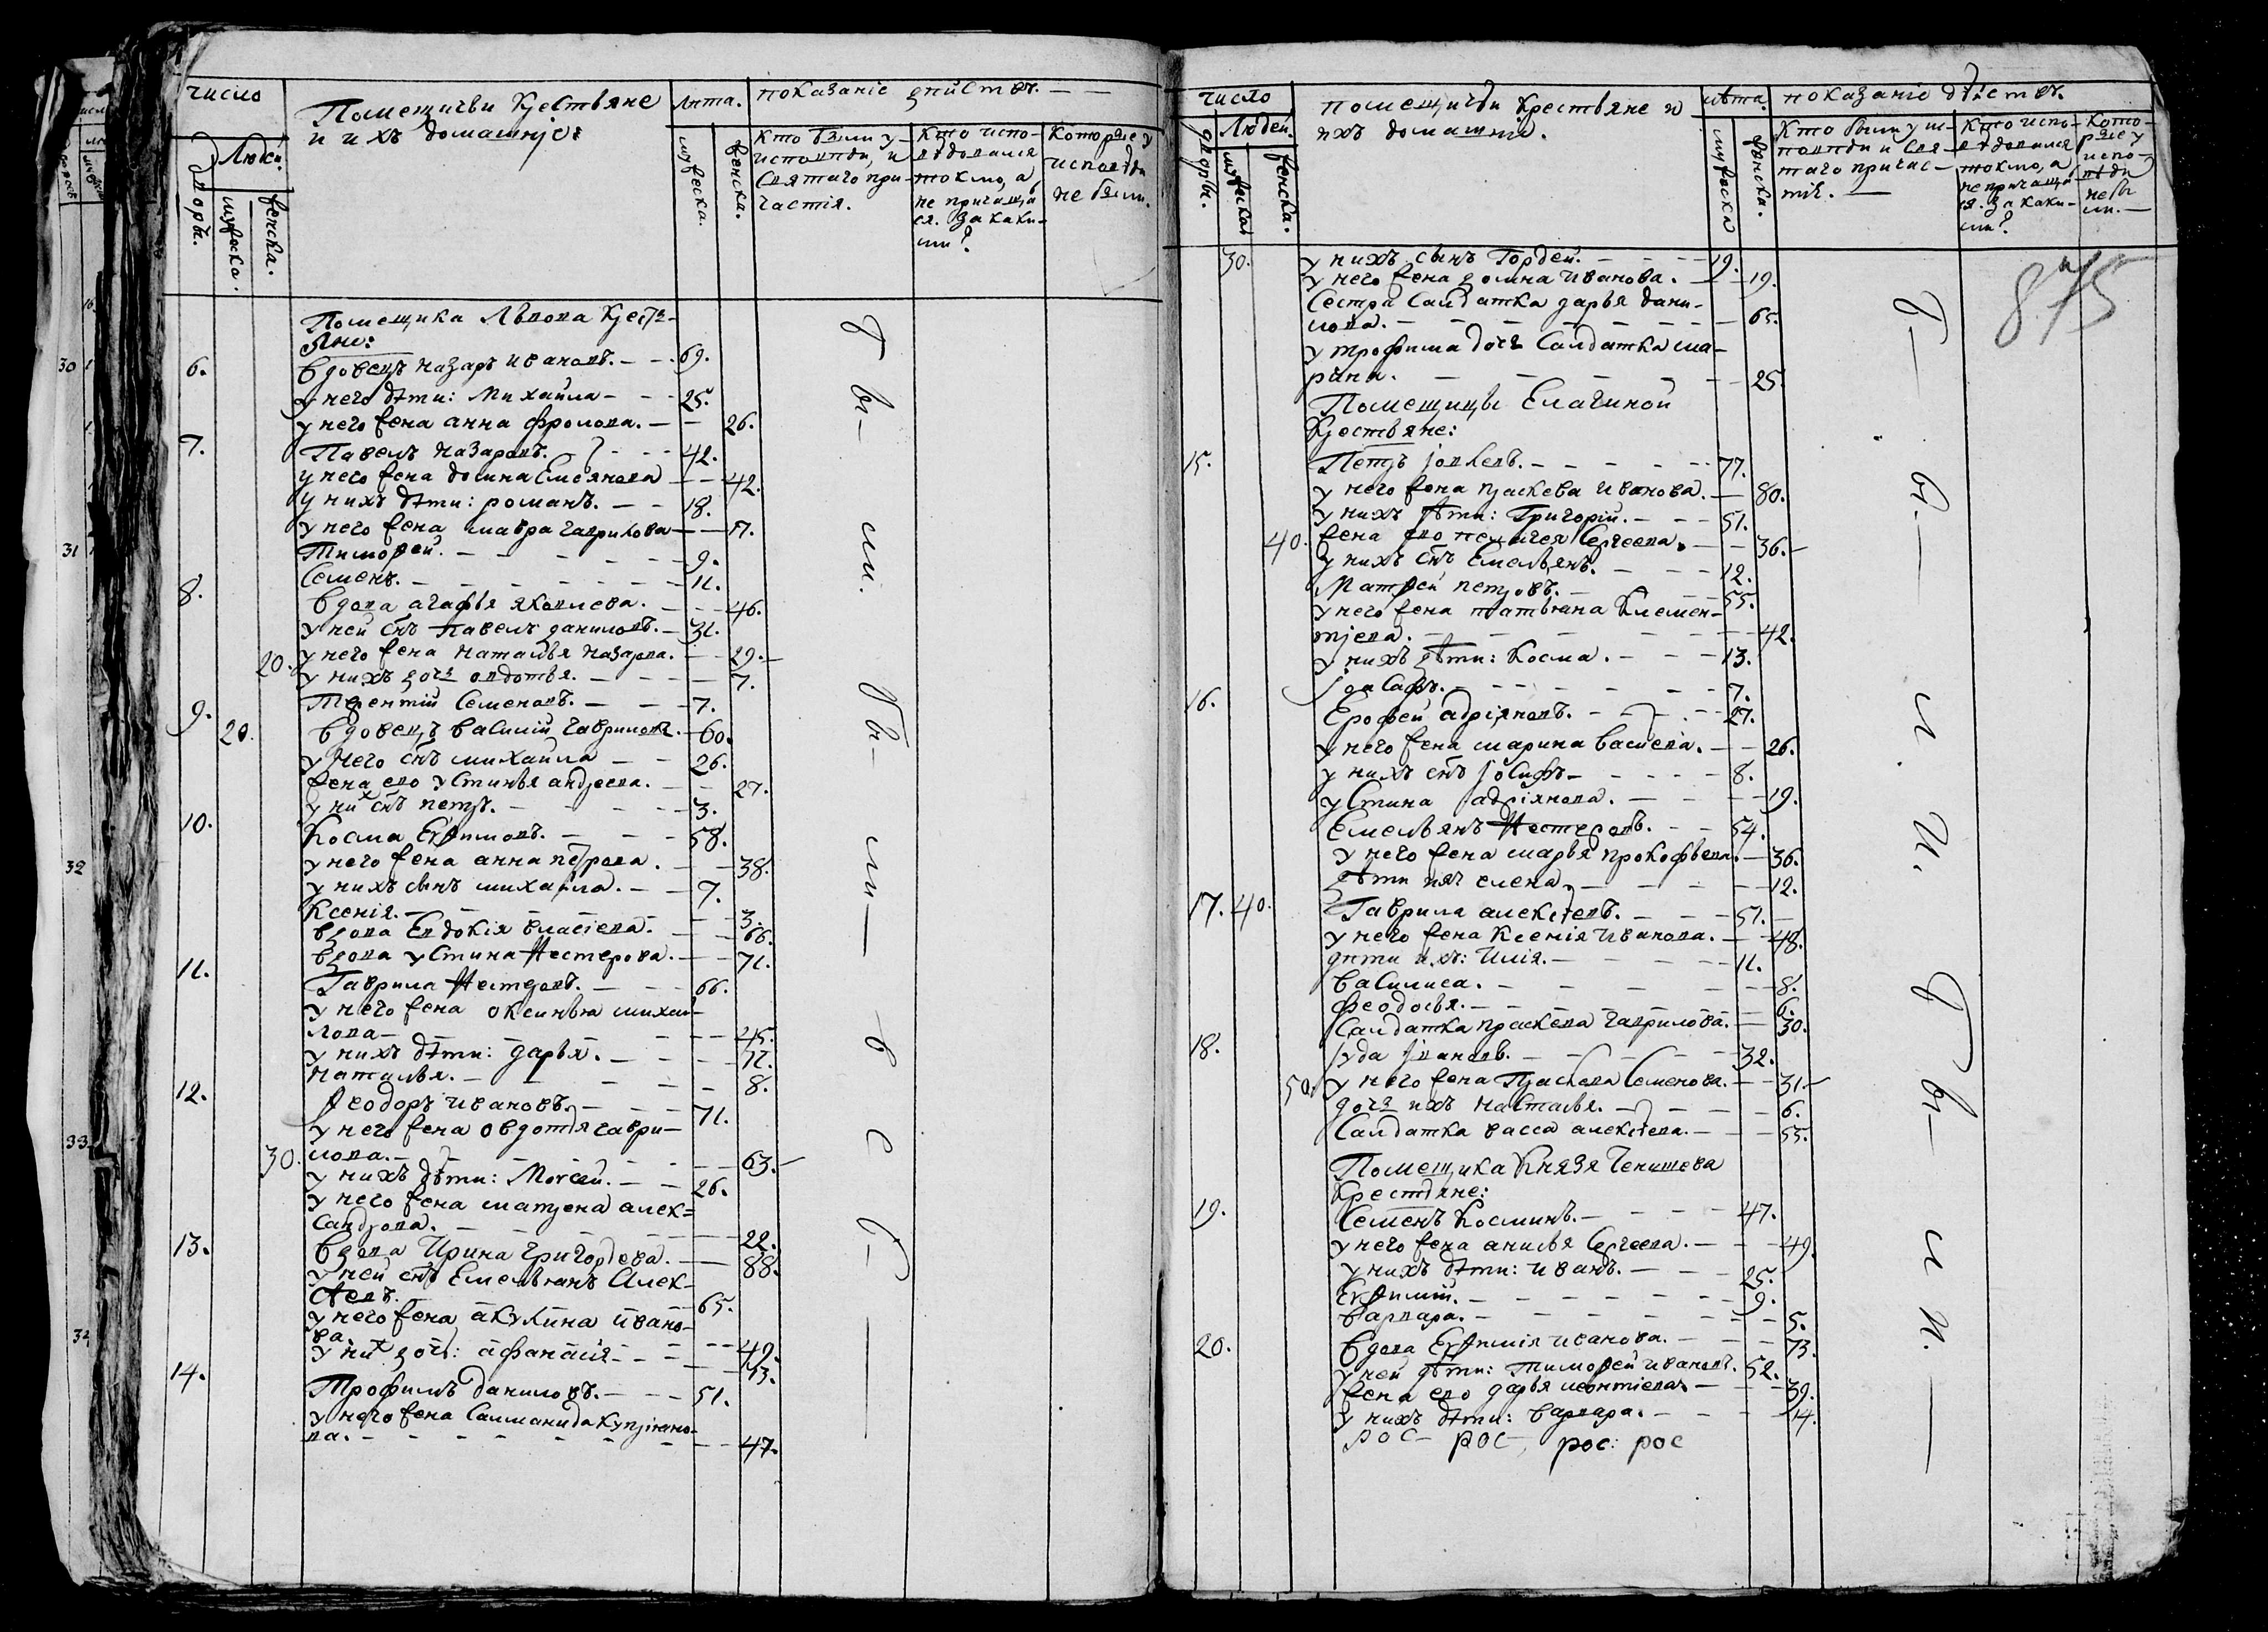 число
Помещичьи крестьяне
и ихъ домашніе:
лѣта.
показаніе дѣйствъ.
дворы.
Людей.
мужеска.
женска.
мужеска.
женска.
Кто были у
исповѣди, и
святаго при-
частія.
Кто испо-
вѣдовался
токмо, а
не причаща
ся. За каки-
ми?
Которые у
исповѣди
не были.
Помещика Львова крестъ-
яне:
6. вдовецъ назаръ ивановъ. 69.
у него дѣти: Михайла 25.
у него жена анна фролова. 26.
7. Павелъ назаровъ. 42.
у него жена домна Емелянова 42.
у нихъ дѣти: романъ. 18.
у него жена мавра гаврилова 17.
Тимофей. 9.
Семенъ. 11.
8. вдова агафья яковлева. 46.
у ней снъ павелъ даниловъ. 31.
20. у него жена наталья назарова. 29.
у нихъ дочь овдотья. 7.
Терентій Семеновъ. 7.
9. 20. вдовецъ василій гавриловъ. 60.
у него снъ михайла 26.
жена ево устинья андреева. 27.
у них снъ петръ. 3.
10. Косма Ефимовъ. 58.
у него жена анна петрова. 38.
у нихъ сынъ михайла. 7.
Ксенія. 3.
вдова Евдокія власіева. 66.
вдова устина Нестерова. 71.
11. Гаврила Нестеровъ. 66.
у него жена оксинья михаи-
лова 45.
у нихъ дѣти: дарья. 12.
наталья. 8.
12. Феодоръ ивановъ. 71.
у него жена овдотья гаври-
30. лова. 63.
у нихъ дѣти: Моисей. 26.
у него жена матрена алек=
сандрова. 22.
13. вдова Ирина григорьева. 88.
у ней снъ Емельянъ Алек-
сѣевъ. 65.
у него жена акулина ивано-
ва. 49.
у них дочь: афанасія 13.
14. Трофимъ даниловъ. 51.
у него жена Саломанида купріяно-
ва. 47.
бы- ли. бы- ли- в с ѣ
число
помещичьи крестьяне и
ихъ домашніе.
лѣта.
показаніе дѣйствъ.
дворы.
Людей.
мужеска
женска.
мужеска
женска.
Кто были у ис-
повѣди и свя-
таго причас-
тія.
Кто испо-
вѣдовался
токмо, а
не причаща
ся. За каки-
ми?
Кото-
рые у
испо-
вѣди
не бы
ли.
875
30. у нихъ сынъ Гордей. 19.
у него жена домна иванова. 19.
Сестра Салдатка дарья дани-
лова. 65.
у трофима дочь Салдатка ма-
рина. 25.
Помещицы Елагиной
Крестьяне:
15. Петръ іовлевъ. 77.
у него жена праскева иванова. 80.
у нихъ дѣти: Григорій. 51.
40. жена ево пелагея Сергеева. 36.
у нихъ снъ Емельянъ. 12.
Матфей петровъ. 55.
у него жена татьяна Клемен-
тіева. 42.
у нихъ дѣти: Косма. 13.
іоасафъ. 7.
16. Ерофей адріяновъ. 27.
у него жена марина васильева. 26.
у нихъ снъ іосифъ 8.
устина адріянова. 19.
Емельянъ Нестеровъ. 54.
у него жена марья прокофьева. 36.
дѣти их елена 12.
17. 40. Гаврила алексѣевъ. 51.
у него жена Ксенія иванова. 48.
дѣти ихъ: Илія. 11.
василиса. 8.
феодосья. 6.
Салдатка праскева гаврилова. 30.
18. іуда івановъ. 32.
50. у него жена Праскева Семенова. 31.
дочь ихъ настасья. 6.
Салдатка васса алексѣева. 55.
Помещика Князя Ченишева
Крестьяне:
19. Семенъ Косминъ. 47.
у него жена анисья Сергеева. 49.
у нихъ дѣти: иванъ. 25.
Ефимій. 9.
варвара. 5.
20. вдова Ефимія иванова. 73.
у ней дѣти: Тимофей ивановъ. 52.
жена ево дарья леонтіева. 39.
у нихъ дѣти: варвара. 14.
рос- рос- рос: рос
б- ы- л и. бы- л и.